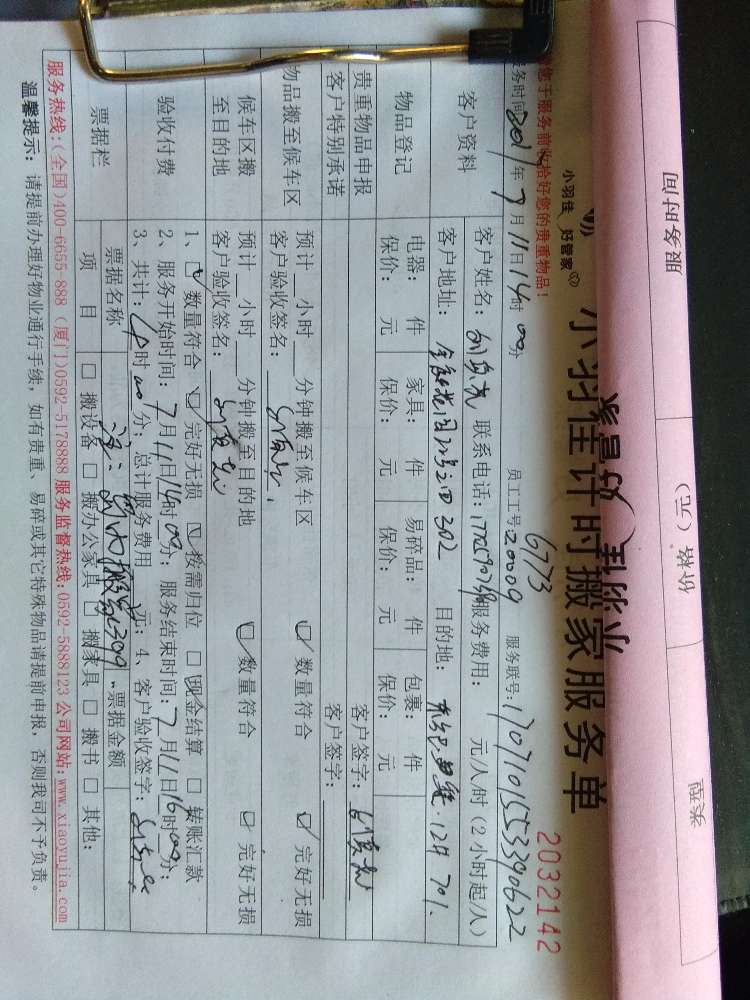 服务时间 价格（元） 类型
小羽佳 好管家
小羽佳计时搬家服务单
2032142
您于服务前收拾好您的贵重物品！
6773
务时间2017年7月11日14时00分 员工工号20009 服务联号:1707101553390622
客户资料
客户姓名： 联系电话： 服务费用： 元/人/时（2小时起/人）
客户地址： 302 目的地： 701.
物品登记
电器： 件 家具： 件 易碎品： 件 包裹： 件
保价： 元 保价： 元 保价： 元 保价： 元
贵重物品申报 客户签字：
客户特别承诺 客户签字：
物品搬至候车区 预计__小时__分钟搬至候车区 ☑数量符合 ☑完好无损
客户验收签名：
候车区搬至目的地 预计__小时__分钟搬至目的地 ☑数量符合 ☑完好无损
客户验收签名：
验收付费
1、☑数量符合 ☑完好无损 ☑按需归位 □现金结算 □转账汇款
2、服务开始时间：7月11日14时00分；服务结束时间：7月11日16时00分；
3、共计：4时00分；总计服务费用 元；4、客户验收签字：
票据栏
票据名称 票据金额
项 目 □搬设备 □搬办公家具 □搬家具 □搬书 □其他：
服务热线:(全国)400-6655-888 (厦门)0592-5178888 服务监督热线:0592-5888123 公司网站:www.xiaoyujia.com
温馨提示：请提前办理好物业通行手续，如有贵重、易碎或其它特殊物品请提前申报，否则我司不予负责。